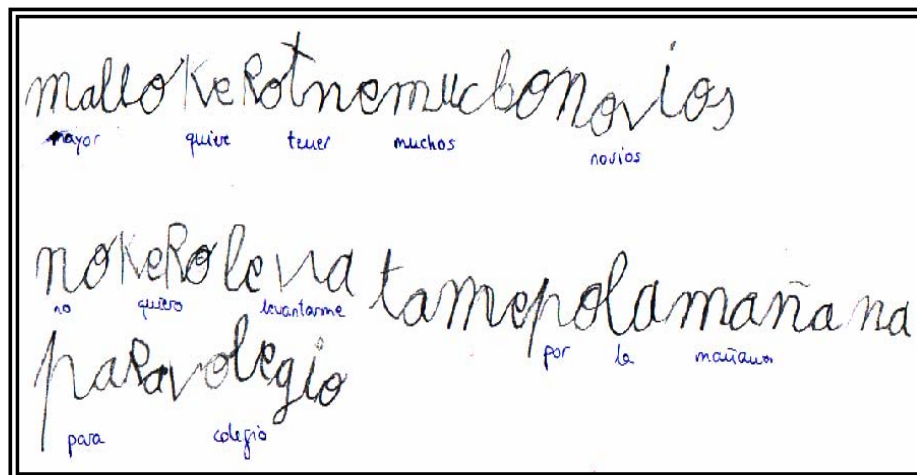 malloKeRotnemucbonovios
mayor quiere tener muchos novios
noKeRolevva tamepolamañana
no quiero levantarme por la mañana
paRavolegio
para colegio